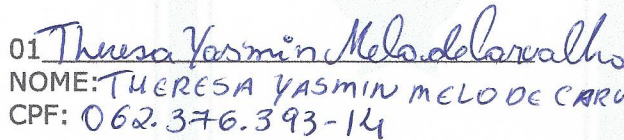 01 Theresa Yasmin Melo de Carvalho
NOME: THERESA YASMIN MELO DE CARV
CPF: 062.376.393-14